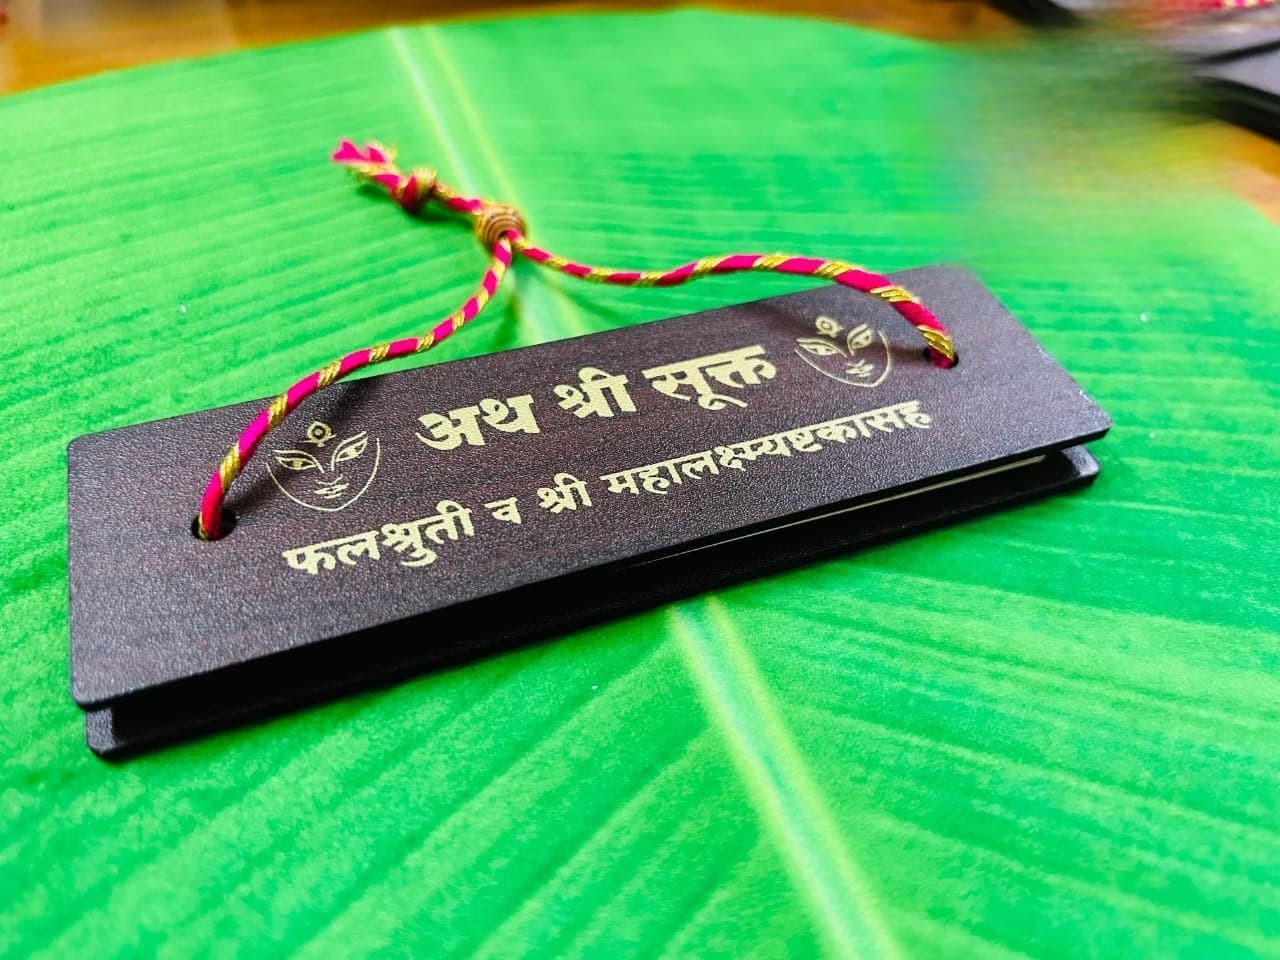 अथ श्री सूक्त
फलश्रुती व श्री महालक्ष्म्यष्टकासह